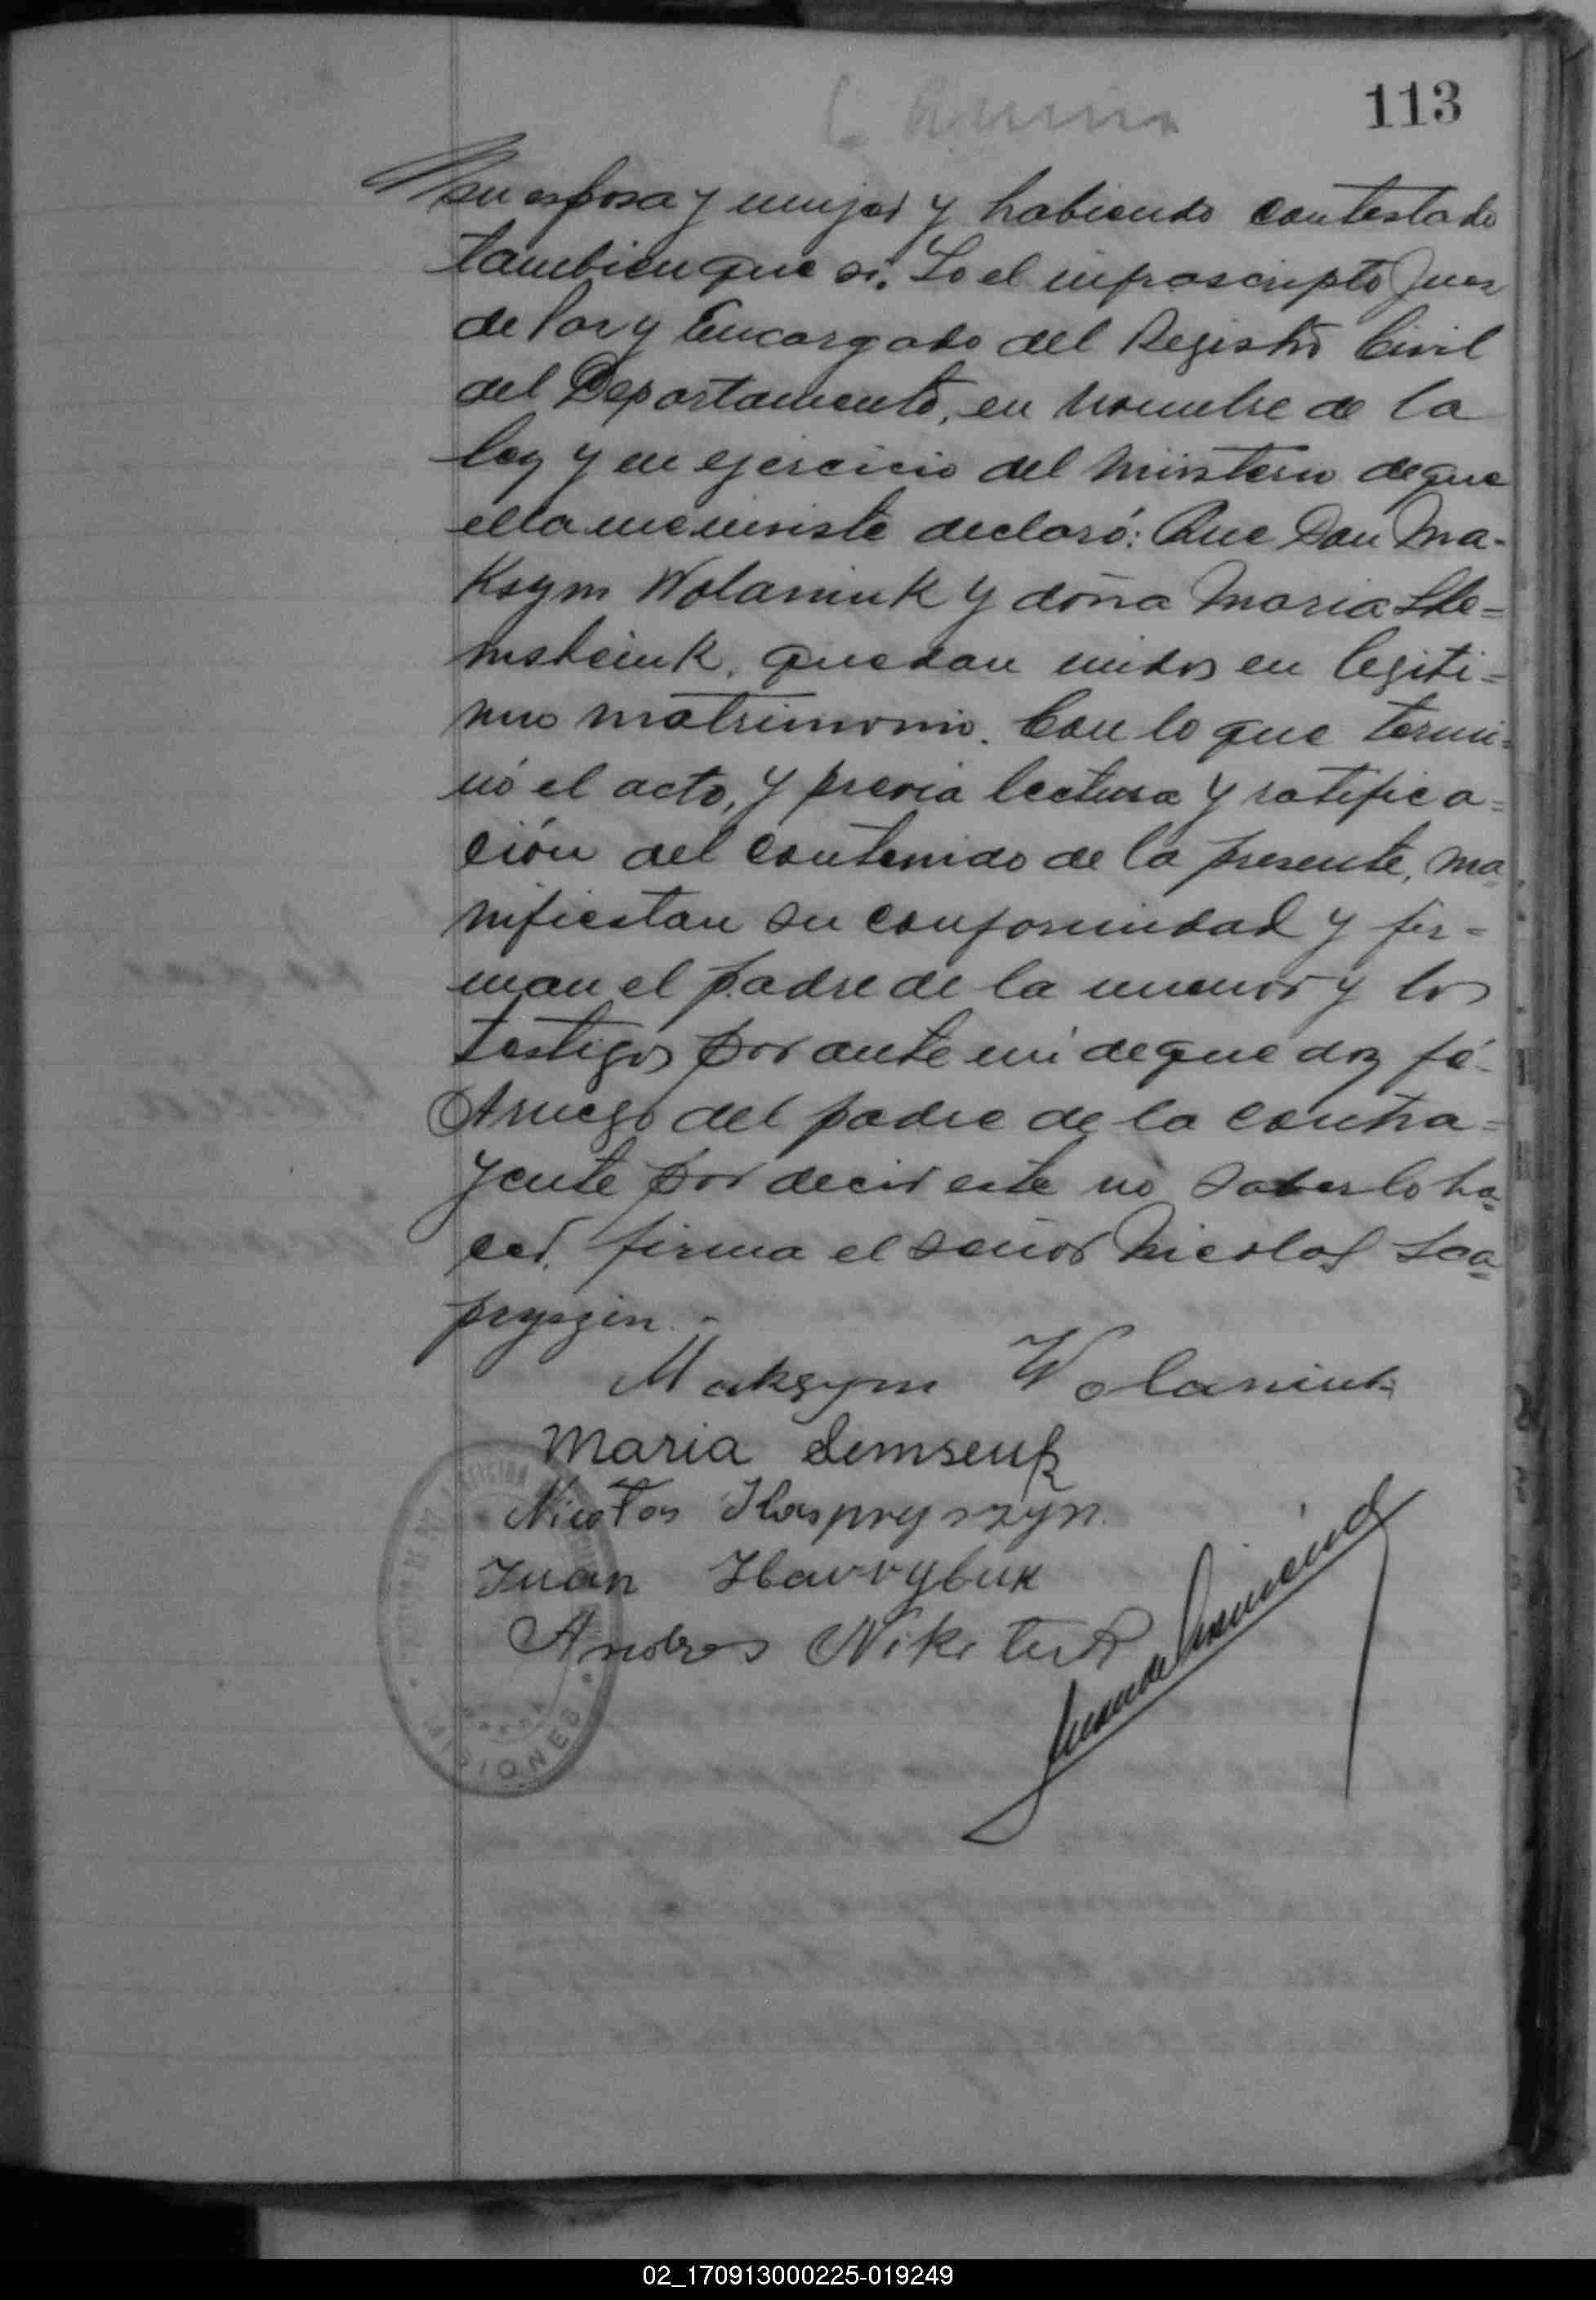 113
su esposa y mujer y habiendo contestado
tambien que si. Yo el infrascripto Juez
de Paz y Encargado del Registro Civil
del Departamento, en nombre de la
ley y en ejercicio del ministerio de que
ella me inviste declaró: Que Don Ma-
ksym Wolaniuk y doña Maria
quedan unidos en legiti=
mo matrimonio. Con lo que termi=
nó el acto, y previa lectura y ratifica=
ción del contenido de la presente, ma
nifiestan su conformidad y fir=
man el padre de la menor y los
testigos por ante mi de que doy fé.
A ruego del padre de la contra=
yente por decir este no saberlo ha=
cer, firma el señor Nicolas
Maksym Wolaniuk
Maria Semseuk
Nicolas Kaspryszyn.
Juan
Andres Nikituk
MISIONES
02_170913000225-019249